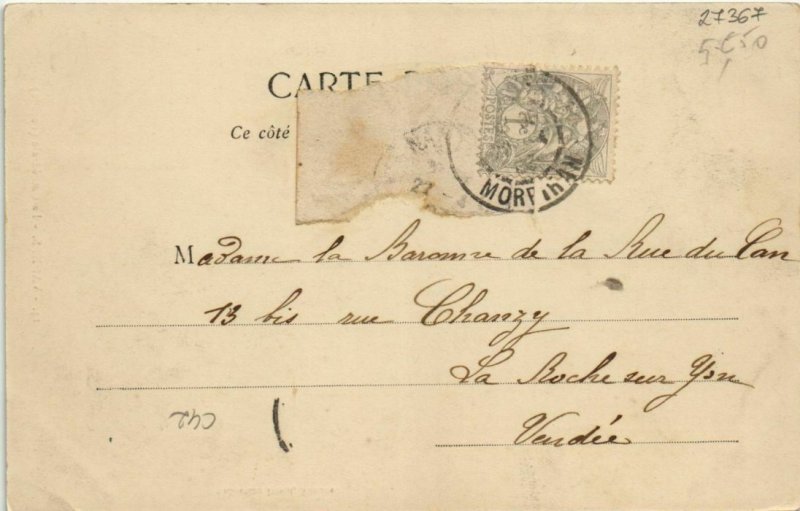 27367
CARTE
Ce côté
POSTES
1c
27
MORBIHAN
Madame la Baronne de la Rue du Can
13 bis rue Chanzy
La Roche sur Yon
Vendée
C42